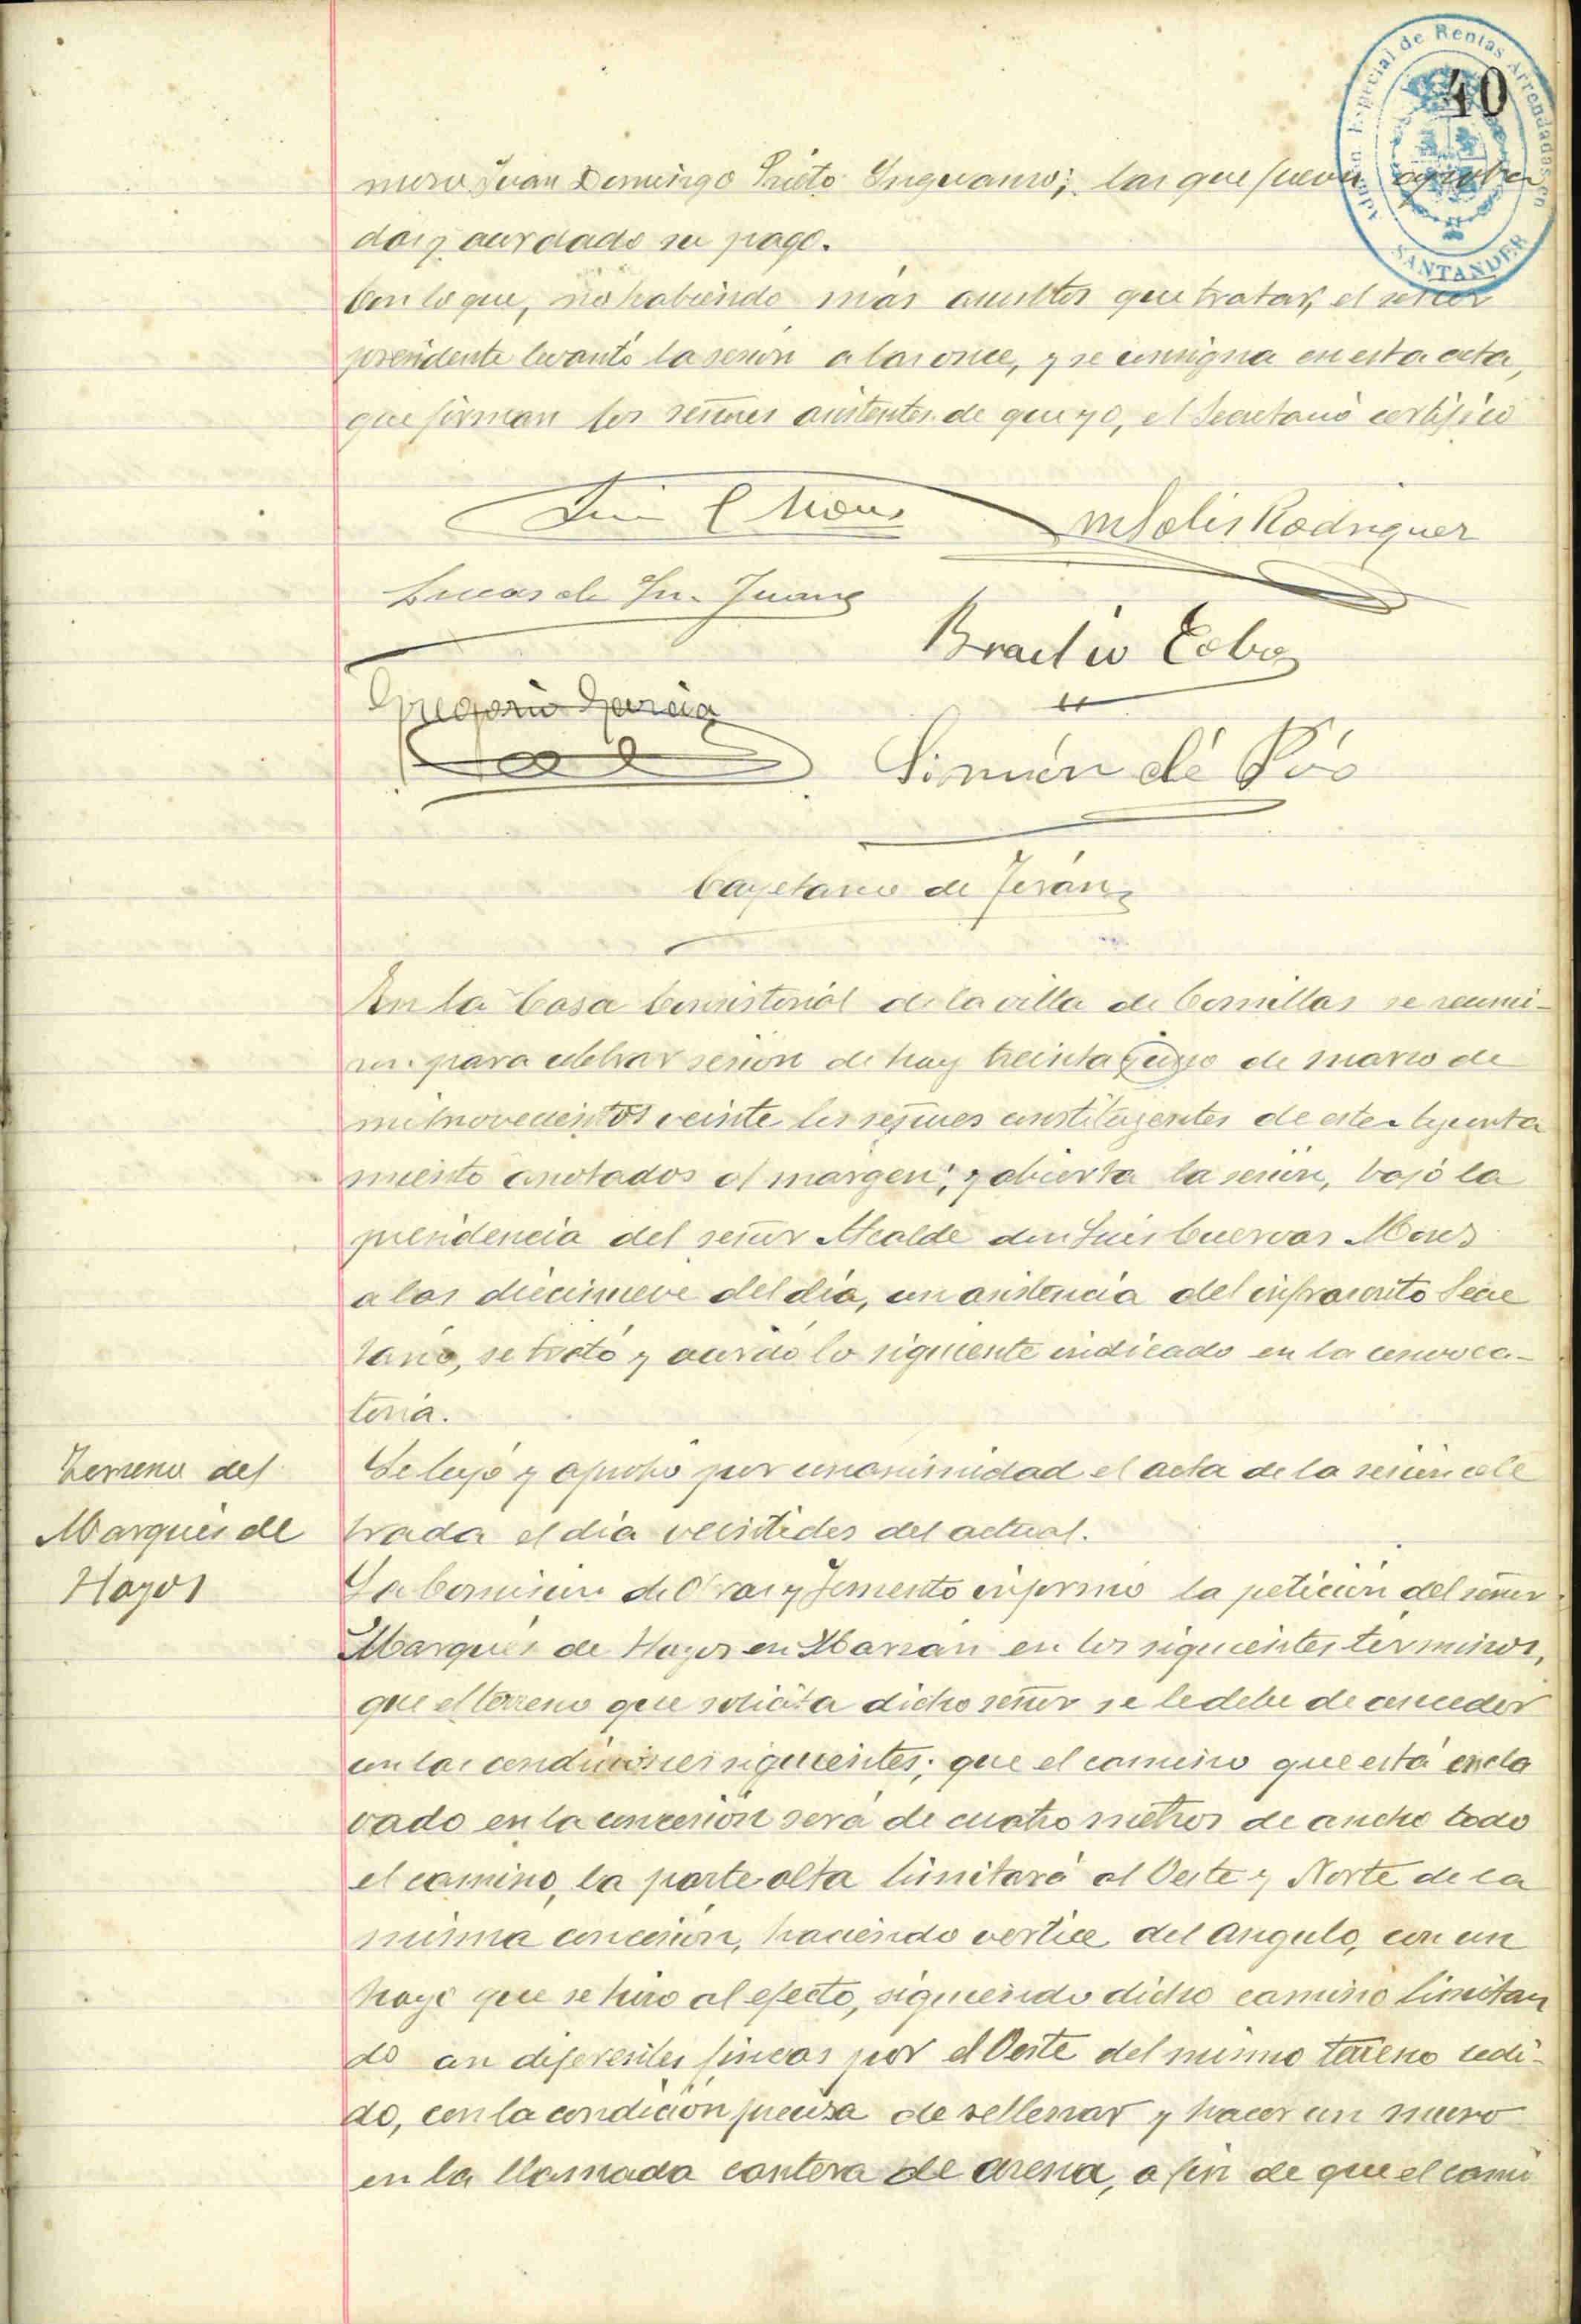 Admon. Especial de Rentas Arrendadas en
SANTANDER
40
mero Juan Domingo Prieto; las que fueron aproba
das y acordado su pago.
Con lo que, no habiendo más asuntos que tratar, el señor
presidente levantó la sesión a las once, y se consigna en esta acta,
que firman los señores asistentes de que yo, el Secretario certifico
Luis C Mons
M Solis Rodriguez
Lucas de Sn. Juan
Braulio Cobo
Gregorio Garcia
Simón dé Pó
Cayetano de Terán
En la Casa Consistorial de la villa de Comillas se reunie-
ron para celebrar sesión de hoy treinta y uno de marzo de
mil novecientos veinte los señores constituyentes de este Ayunta
miento anotados al margen; y abierta la sesión, bajo la
presidencia del señor Alcalde don Luis Cuervas Mons
a las diecinueve del día, con asistencia del infrascrito Secre
tario, se trató y acordó lo siguiente indicado en la convoca-
toria.
Terreno del
Marqués de
Hoyos
Se leyó y aprobó por unanimidad el acta de la sesión cele
brada el día veintidos del actual.
La Comision de Obras y Fomento informó la petición del señor
Marqués de Hoyos en Marzán en los siguientes términos,
que el terreno que solicita dicho señor se le debe de conceder
con las condiciones siguientes; que el camino que está encla
vado en la concesión será de cuatro metros de ancho todo
el camino, la parte alta limitará al Oeste y Norte de la
misma concesión, haciendo vertice del angulo, con un
hoyo que se hizo al efecto, siguiendo dicho camino limitan
do con diferentes fincas por el Oeste del mismo terreno cedi-
do, con la condición precisa de rellenar y hacer un muro
en la llamada cantera de arena, a fin de que el cami